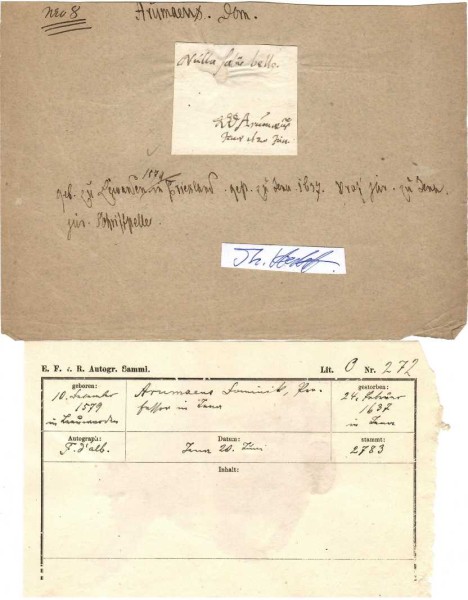 Neo 8
Arumaeus. Dom.
Nulla salus bello.
Arumäus
geb. zu Leuwarden in Friesland 1579 gest. zu Jena 1637. Prof. jur. zu Jena.
jur. Schriftsteller.
Th.
E. F. v. R. Autogr. Samml.
Lit. O Nr. 272
geboren:
10. Dezember
1579
in Leeuwarden
Arumaeus Dominik, Pro-
fessor in Jena
gestorben:
24. Februar
1637
in Jena
Autograph:
F. d'alb.
Datum:
Jena 20. Juni
stammt:
2783
Inhalt: